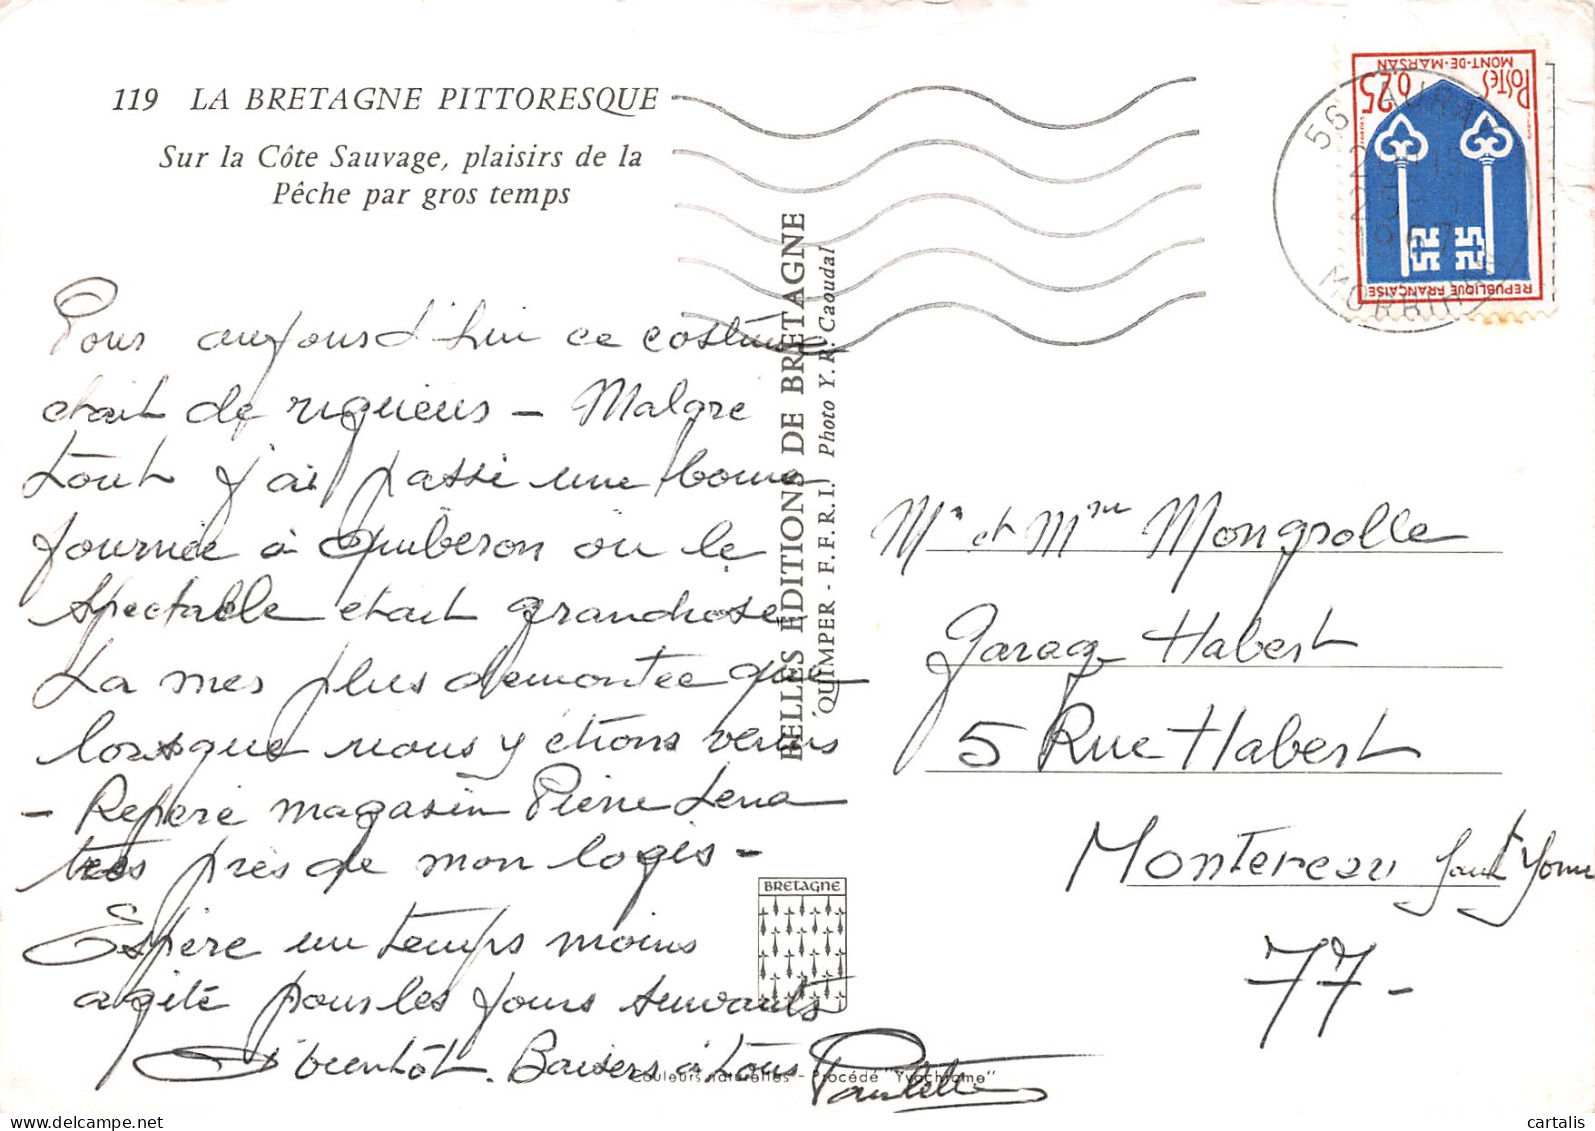 119 LA BRETAGNE PITTORESQUE
Sur la Côte Sauvage, plaisirs de la
Pêche par gros temps
Pour aujourd'hui ce costume
était de rigueur - Malgré
tout j'ai passé une bonne
journée à Quiberon où le
spectacle était grandiose
La mer plus démontée que
lorsque nous y étions venus
- Repère magasin Pierre Lena
très près de mon logis -
Espère un temps moins
agité pour les jours suivants
A bientôt. Baisers à tous Paulette
BELLES ÉDITIONS DE BRETAGNE
QUIMPER - F.F.R.I. Photo Y. R. Caoudal
BRETAGNE
Couleurs naturelles - Procédé "Yvochrome"
POSTES 0,25
MONT-DE-MARSAN
REPUBLIQUE FRANÇAISE
56 AURAY
MORBIHAN
Mr et Mme Mongrolle
Garage Habert
5 Rue Habert
Montereau faut Yonne
77 -
cartalis